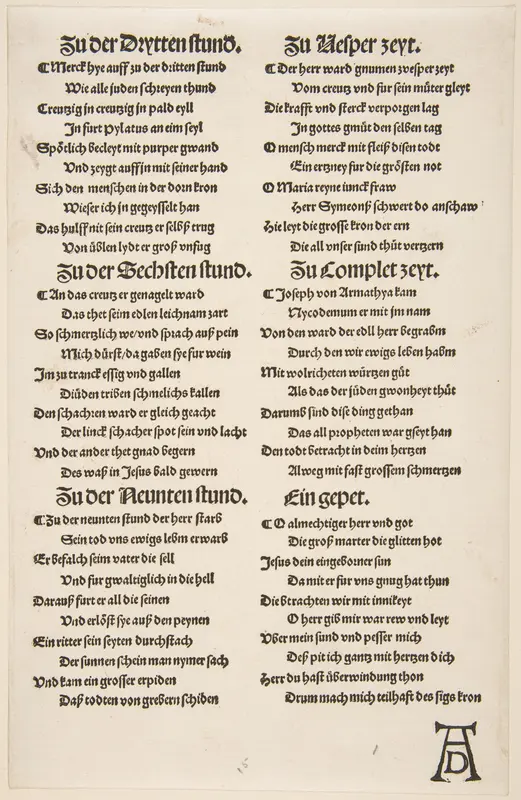 Zu der Drytten stund.
Merck hye auff zu der dritten stund
Wie alle juden schreyen thund
Creutzig in creutzig in pald eyll
In furt pylatus an eim seyl
Spötlich becleyt mit purper gwand
Vnd zeygt auff in mit seiner hand
Sich den menschen in der dorn kron
Wie ser ich jn gegeysselt han
Das hulff nit sein creutz er selbs trug
Von üblen lydt er groß vnfug
Zu der Sechsten stund.
An das creutz er genagelt ward
Das thet seim edlen leichnam zart
So schmertzlich we/vnd sprach auß pein
Mich dürst/da gaben sye fur wein
Im zu tranck essig vnd gallen
Die üden triben schmelichs kallen
Den schachren ward er gleich geacht
Der linck schacher spot sein vnd lacht
Vnd der ander thet gnad begern
Des waß in Jesus bald gewern
Zu der Neunten stund.
Zu der neunten stund der herr starb
Sein tod vns ewigs lebm erwarb
Er befalch seim vater die sell
Vnd fur gwaltiglich in die hell
Darauß furt er all die seinen
Vnd erlöst sye auß den peynen
Ein ritter sein seyten durchstach
Der sunnen schein man nymer sach
Vnd kam ein grosser erpiden
Daß todten von grebern schiden
Zu Vesper zeyt.
Der herr ward gnumen zvesper zeyt
Vom creutz vnd fur sein můter gleyt
Die krafft vnd sterck verporgen lag
In gottes gmüt den selben tag
O mensch merck mit fleiß disen todt
Ein ertzney fur die grösten not
O Maria reyne iunckfraw
Herr Symeonß schwert do anschaw
Hie leyt die grosse kron der ern
Die all vnser sund thüt vertzern
Zu Complet zeyt.
Joseph von Armathya kam
Nycodemum er mit jm nam
Von den ward der edll herr begrabm
Durch den wir ewigs leben habm
Mit wolricheten würtzen güt
Als das der jüden gwonheyt thüt
Darumb sind dise ding gethan
Das all propheten war gseyt han
Den todt betracht in deim hertzen
Alweg mit fast grossem schmertzen
Ein gepet.
O almechtiger herr vnd got
Die groß marter die glitten hot
Jesus dein eingeborner sun
Da mit er fur vns gnug hat thun
Die btrachten wir mit innikeyt
O herr gib mir war rew vnd leyt
Vber mein sund vnd pesser mich
Deß pit ich gantz mit hertzen dich
Herr du hast überwindung thon
Drum mach mich teilhaft des sigs kron
AD